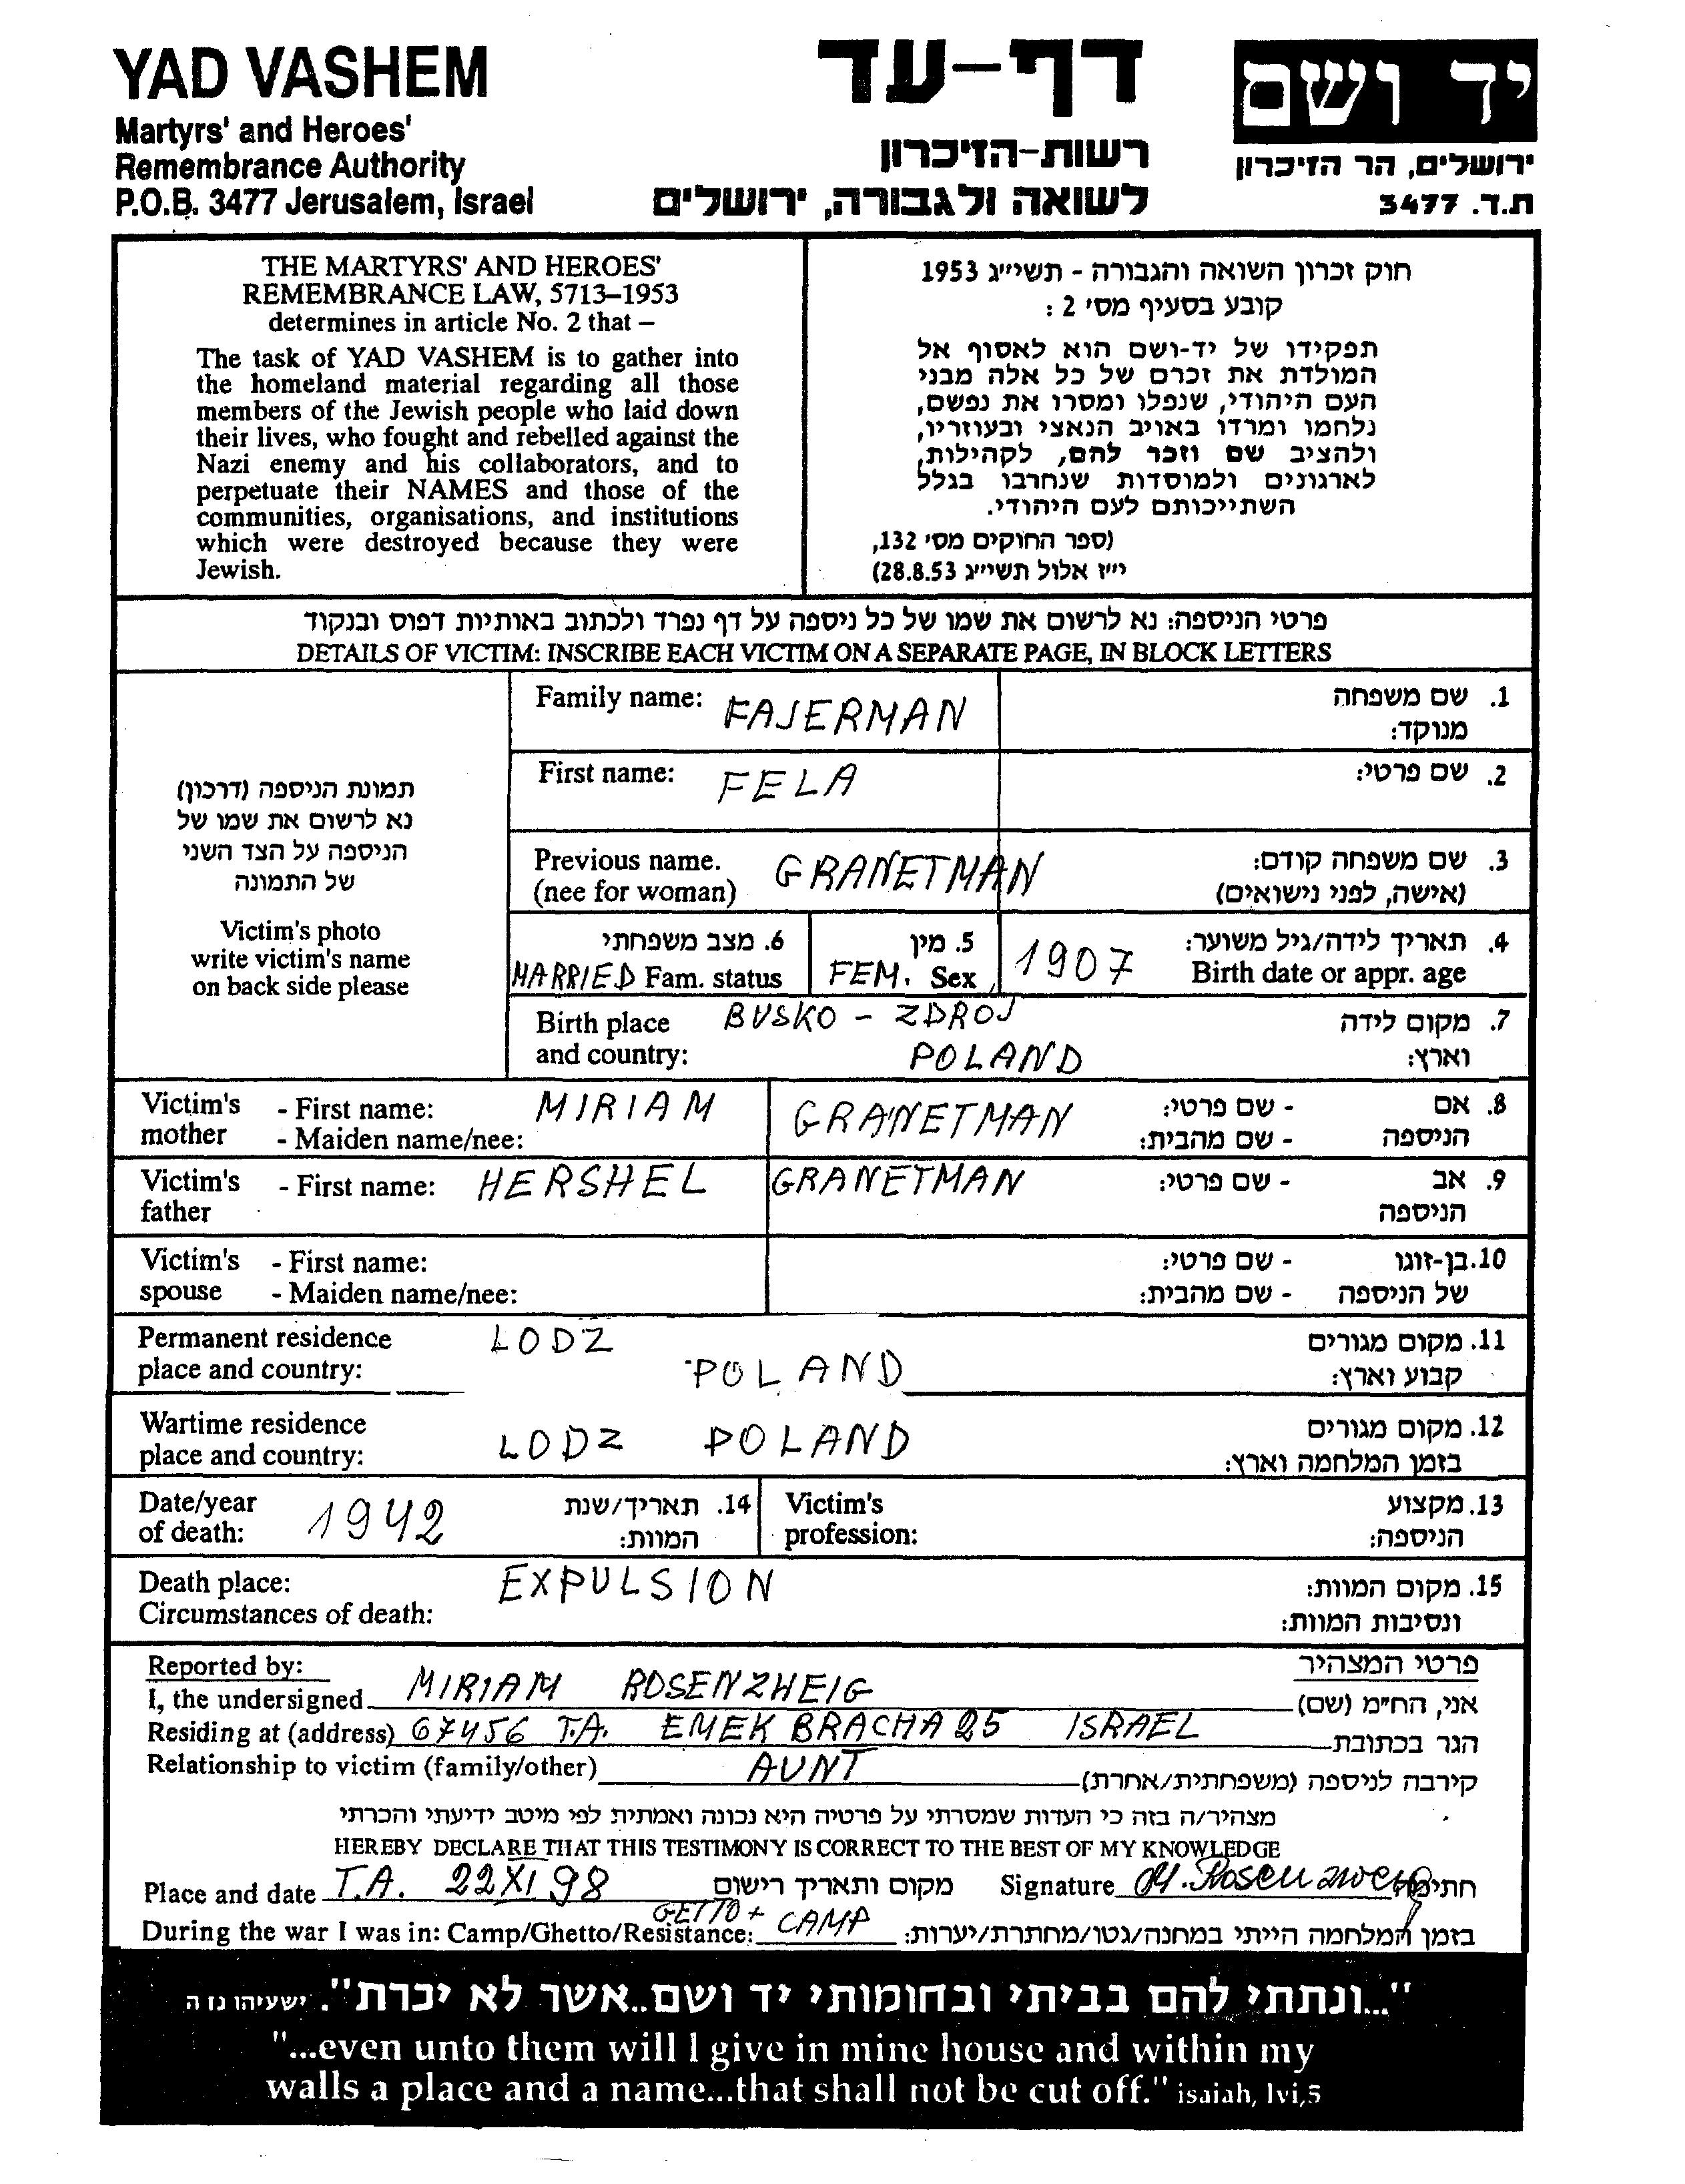 YAD VASHEM
Martyrs' and Heroes'
Remembrance Authority
P.O.B. 3477 Jerusalem, Israel
דף-עד
רשות-הזיכרון
לשואה ולגבורה, ירושלים
יד ושם
ירושלים, הר הזיכרון
ת.ד. 3477
THE MARTYRS' AND HEROES'
REMEMBRANCE LAW, 5713–1953
determines in article No. 2 that –
The task of YAD VASHEM is to gather into
the homeland material regarding all those
members of the Jewish people who laid down
their lives, who fought and rebelled against the
Nazi enemy and his collaborators, and to
perpetuate their NAMES and those of the
communities, organisations, and institutions
which were destroyed because they were
Jewish.
חוק זכרון השואה והגבורה - תשי״ג 1953
קובע בסעיף מס' 2 :
תפקידו של יד-ושם הוא לאסוף אל
המולדת את זכרם של כל אלה מבני
העם היהודי, שנפלו ומסרו את נפשם,
נלחמו ומרדו באויב הנאצי ובעוזריו,
ולהציב שם וזכר להם, לקהילות,
לארגונים ולמוסדות שנחרבו בגלל
השתייכותם לעם היהודי.
(ספר החוקים מס' 132,
י״ז אלול תשי״ג 28.8.53)
פרטי הניספה: נא לרשום את שמו של כל ניספה על דף נפרד ולכתוב באותיות דפוס ובנקוד
DETAILS OF VICTIM: INSCRIBE EACH VICTIM ON A SEPARATE PAGE, IN BLOCK LETTERS
תמונת הניספה (דרכון)
נא לרשום את שמו של
הניספה על הצד השני
של התמונה
Victim's photo
write victim's name
on back side please
Family name: FAJERMAN 1. שם משפחה
מנוקד:
First name: FELA 2. שם פרטי:
Previous name. GRANETMAN 3. שם משפחה קודם:
(nee for woman) (אישה, לפני נישואים)
6. מצב משפחתי 5. מין 4. תאריך לידה/גיל משוער:
MARRIED Fam. status FEM. Sex 1907 Birth date or appr. age
Birth place BUSKO - ZDROJ 7. מקום לידה
and country: POLAND וארץ:
Victim's - First name: MIRIAM GRANETMAN - שם פרטי: 8. אם
mother - Maiden name/nee: - שם מהבית: הניספה
Victim's - First name: HERSHEL GRANETMAN - שם פרטי: 9. אב
father הניספה
Victim's - First name: - שם פרטי: 10. בן-זוגו
spouse - Maiden name/nee: - שם מהבית: של הניספה
Permanent residence LODZ 11. מקום מגורים
place and country: POLAND קבוע וארץ:
Wartime residence LODZ POLAND 12. מקום מגורים
place and country: בזמן המלחמה וארץ:
Date/year 1942 14. תאריך/שנת Victim's 13. מקצוע
of death: המוות: profession: הניספה:
Death place: EXPULSION 15. מקום המוות:
Circumstances of death: ונסיבות המוות:
Reported by: פרטי המצהיר
I, the undersigned MIRIAM ROSENZHEIG אני, הח״מ (שם)
Residing at (address) 67456 T.A. EMEK BRACHA 25 ISRAEL הגר בכתובת
Relationship to victim (family/other) AUNT קירבה לניספה (משפחתית/אחרת)
מצהיר/ה בזה כי העדות שמסרתי על פרטיה היא נכונה ואמתית לפי מיטב ידיעתי והכרתי
HEREBY DECLARE THAT THIS TESTIMONY IS CORRECT TO THE BEST OF MY KNOWLEDGE
Place and date T.A. 22 XI 98 מקום ותאריך רישום Signature M. Rosenzweig חתימה
During the war I was in: Camp/Ghetto/Resistance: GETTO + CAMP בזמן המלחמה הייתי במחנה/גטו/מחתרת/יערות:
"...ונתתי להם בביתי ובחומותי יד ושם..אשר לא יכרת". ישעיהו נו ה
"...even unto them will I give in mine house and within my
walls a place and a name...that shall not be cut off." isaiah, lvi,5